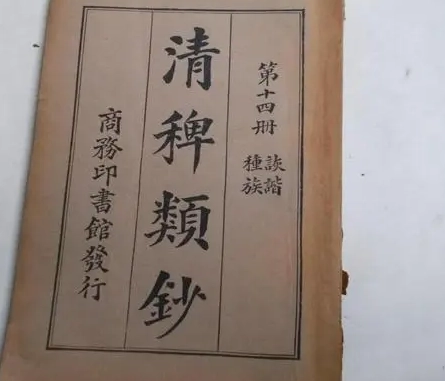 第十四冊
詼諧
種族
清稗類鈔
商務印書館發行